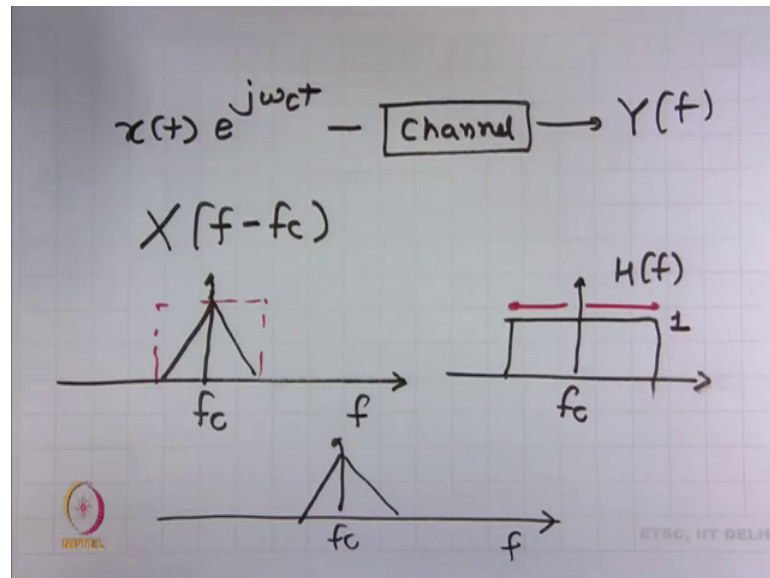 x(t) e^{jωct} — Channel → Y(f)
X(f-fc)
H(f)
1
fc f
fc
fc f
NPTEL
ETSC, IIT DELH